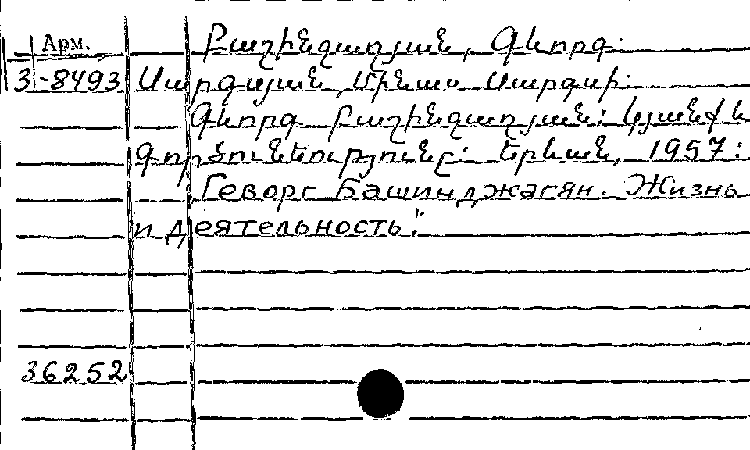 Բաշինջաղյան, Գևորգ.
Арм.
3-8493 Սարգսյան, Մինաս Սարգսի.
Գևորգ Բաշինջաղյան: Կյանքն և
գործունեությունը: Երևան, 1957:
"Геворг Башинджагян. Жизнь
и деятельность".
36252